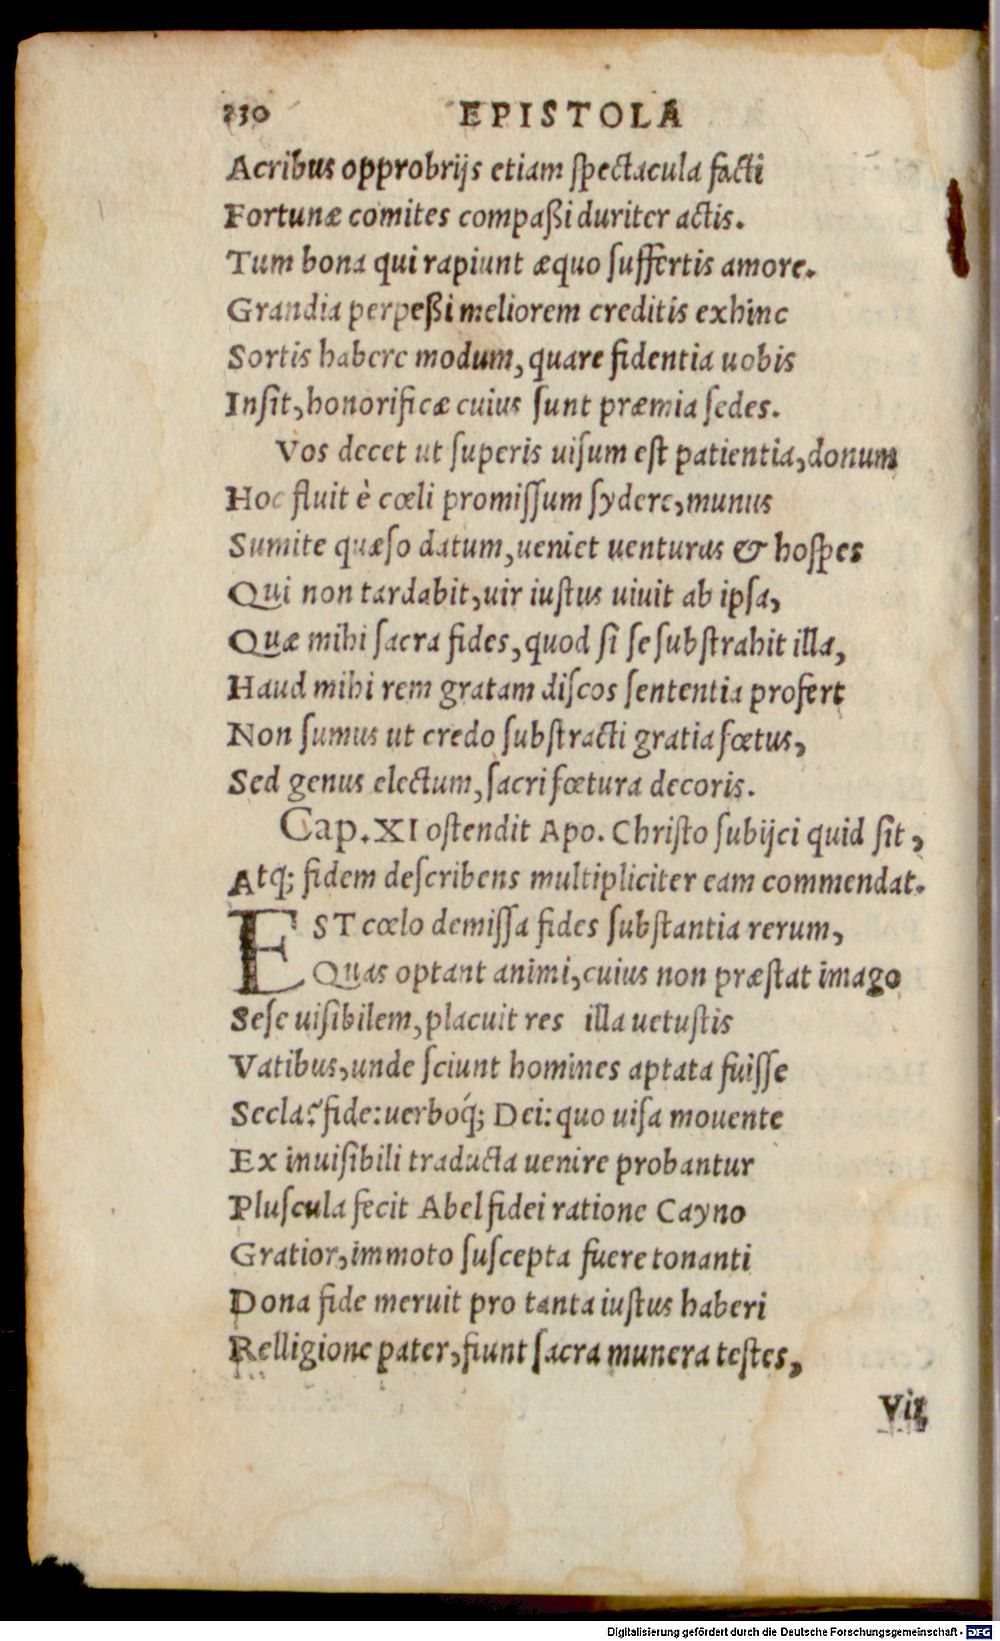 230 EPISTOLA
Acribus opprobrijs etiam ſpectacula facti
Fortunæ comites compaßi duriter actis.
Tum bona qui rapiunt æquo ſuffertis amore.
Grandia perpeßi meliorem creditis exhinc
Sortis habere modum, quare fidentia uobis
Inſit, honorificæ cuius ſunt præmia ſedes.
Vos decet ut ſuperis uiſum eſt patientia, donum
Hoc fluit è cœli promiſſum ſydere, munus
Sumite quæſo datum, ueniet uenturus & hoſpes
Qui non tardabit, uir iuſtus uiuit ab ipſa,
Quæ mihi ſacra fides, quod ſi ſe ſubſtrahit illa,
Haud mihi rem gratam diſcos ſententia profert
Non ſumus ut credo ſubſtracti gratia fœtus,
Sed genus electum, ſacri fœtura decoris.
Cap. XI oſtendit Apo. Chriſto ſubijci quid ſit,
Atq; fidem deſcribens multipliciter eam commendat.
EST cœlo demiſſa fides ſubſtantia rerum,
Quas optant animi, cuius non præſtat imago
Seſe uiſibilem, placuit res illa uetuſtis
Vatibus, unde ſciunt homines aptata fuiſſe
Secla: fide: uerboq́; Dei: quo uiſa mouente
Ex inuiſibili traducta uenire probantur
Pluſcula fecit Abel fidei ratione Cayno
Gratior, immoto ſuſcepta fuere tonanti
Dona fide meruit pro tanta iuſtus haberi
Relligione pater, fiunt ſacra munera teſtes,
Digitalisierung gefördert durch die Deutsche Forschungsgemeinschaft - DFG